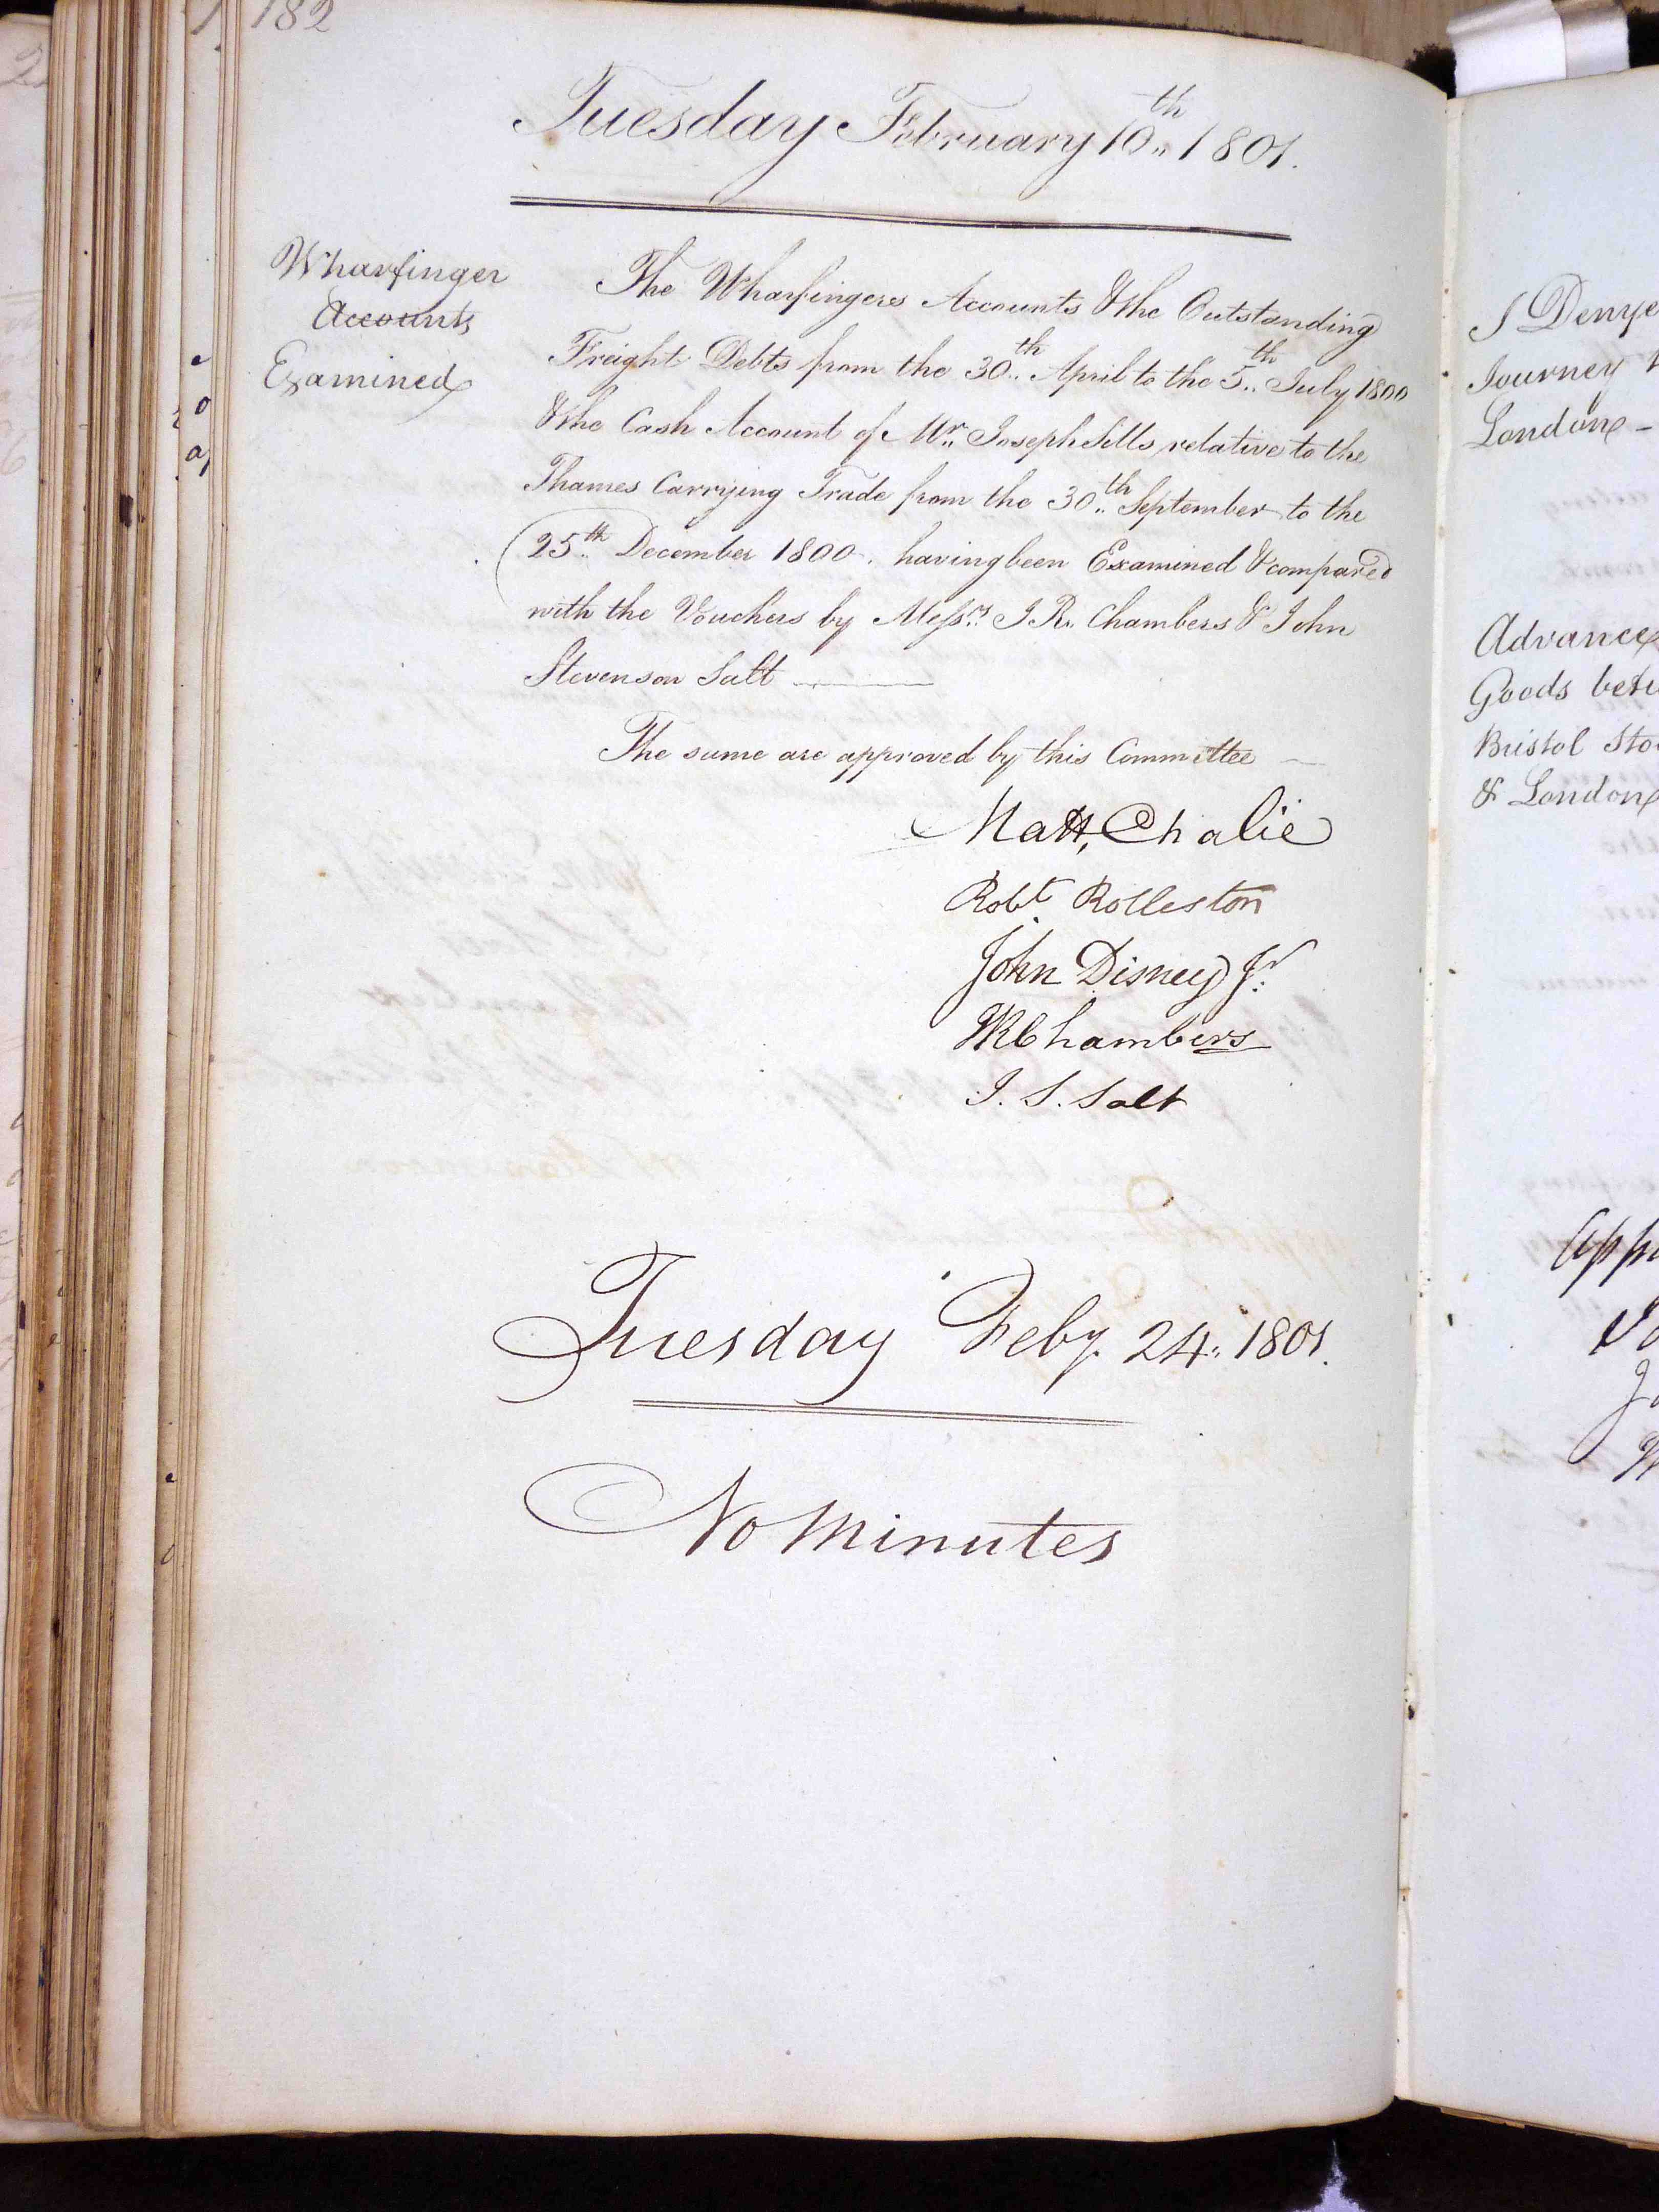 182
Tuesday February 10th 1801.
Wharfinger
Accounts
Examined
The Wharfingers Accounts & the Outstanding
Freight Debts from the 30th April to the 5th July 1800
& the Cash Account of Mr Joseph Sills relative to the
Thames Carrying Trade from the 30th September to the
25th December 1800. having been Examined & compared
with the Vouchers by Messrs J R Chambers & John
Stevenson Salt
The same are approved by this Committee
Matt, Chalié
Robt Rolleston
John Disney Jr
JRChambers
J. S. Salt
Tuesday Feby. 24. 1801.
No Minutes
J Denye
Journey
London
Advance
Goods betw
Bristol Sto
& London
App
Jo